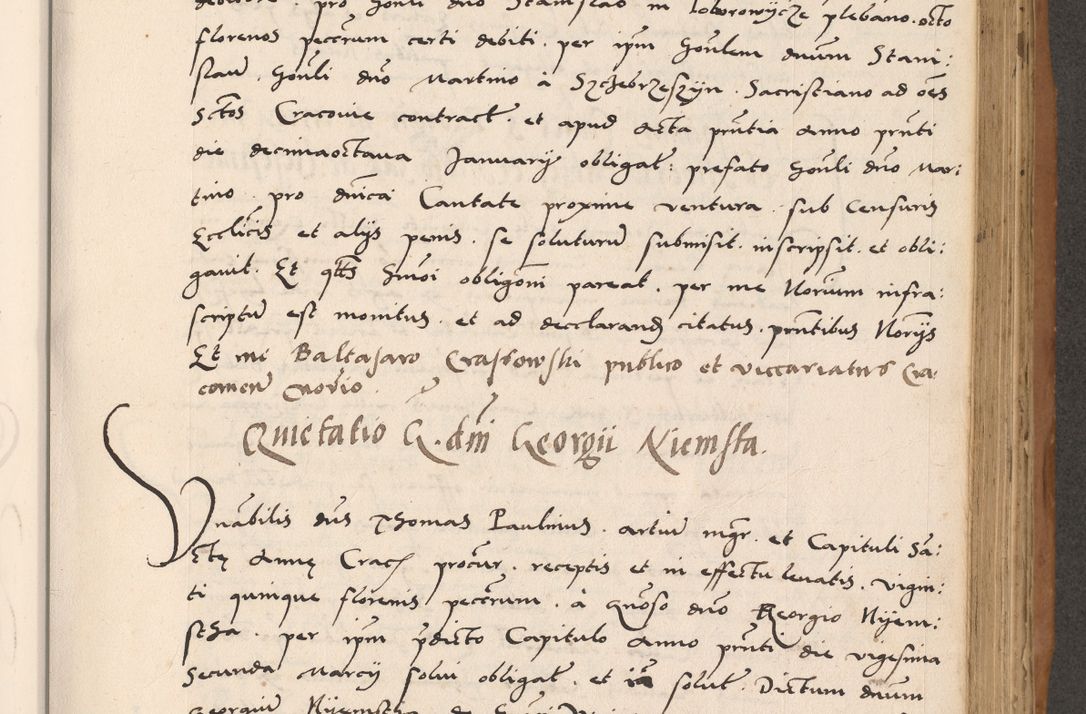 debitore . pro Honli dno Stanislao in Loborowycze plebano . octo
florenos peccrum certi debiti . per ipm Honlem dnum Stani:
slaum . Honli dno Martino à Szczebrzeszyn . Sacristiano ad oes
Sctos Cracovie contract. et apud Acta prntia Anno prnti
die decimaoctava Januarij obligat: prefato Honli dno Mar:
tino . pro dnica Cantate proxime ventura . sub Censuris
Ecclicis et alijs penis . se soluturum submisit . inscripsit . et obli:
gavit . Et qtts hmoi obligoni pareat . per me Norium infra:
scriptum est monitus . et ad decclarand citatus . prntibus Norijs
Et me Baltasaro Crassowski publico et viccariatus Cra:
comen Norio .
Quietatio G. dni Georgii Niemsta.
Vnabilis dns Thomas Paulinus . artium mgr . et Capituli Sa:
ctę Annę Crac procur . receptis et in effectu levatis . vigin:
ti quinque florenis peccrum . à Gnoso dno Georgio Nyem:
stha . per ipm pdicto Capitulo Anno prnti die vigesima
Secunda Marcij solvi obligat . et ia solut . Dictum dnum
Georgium Nijemstha de